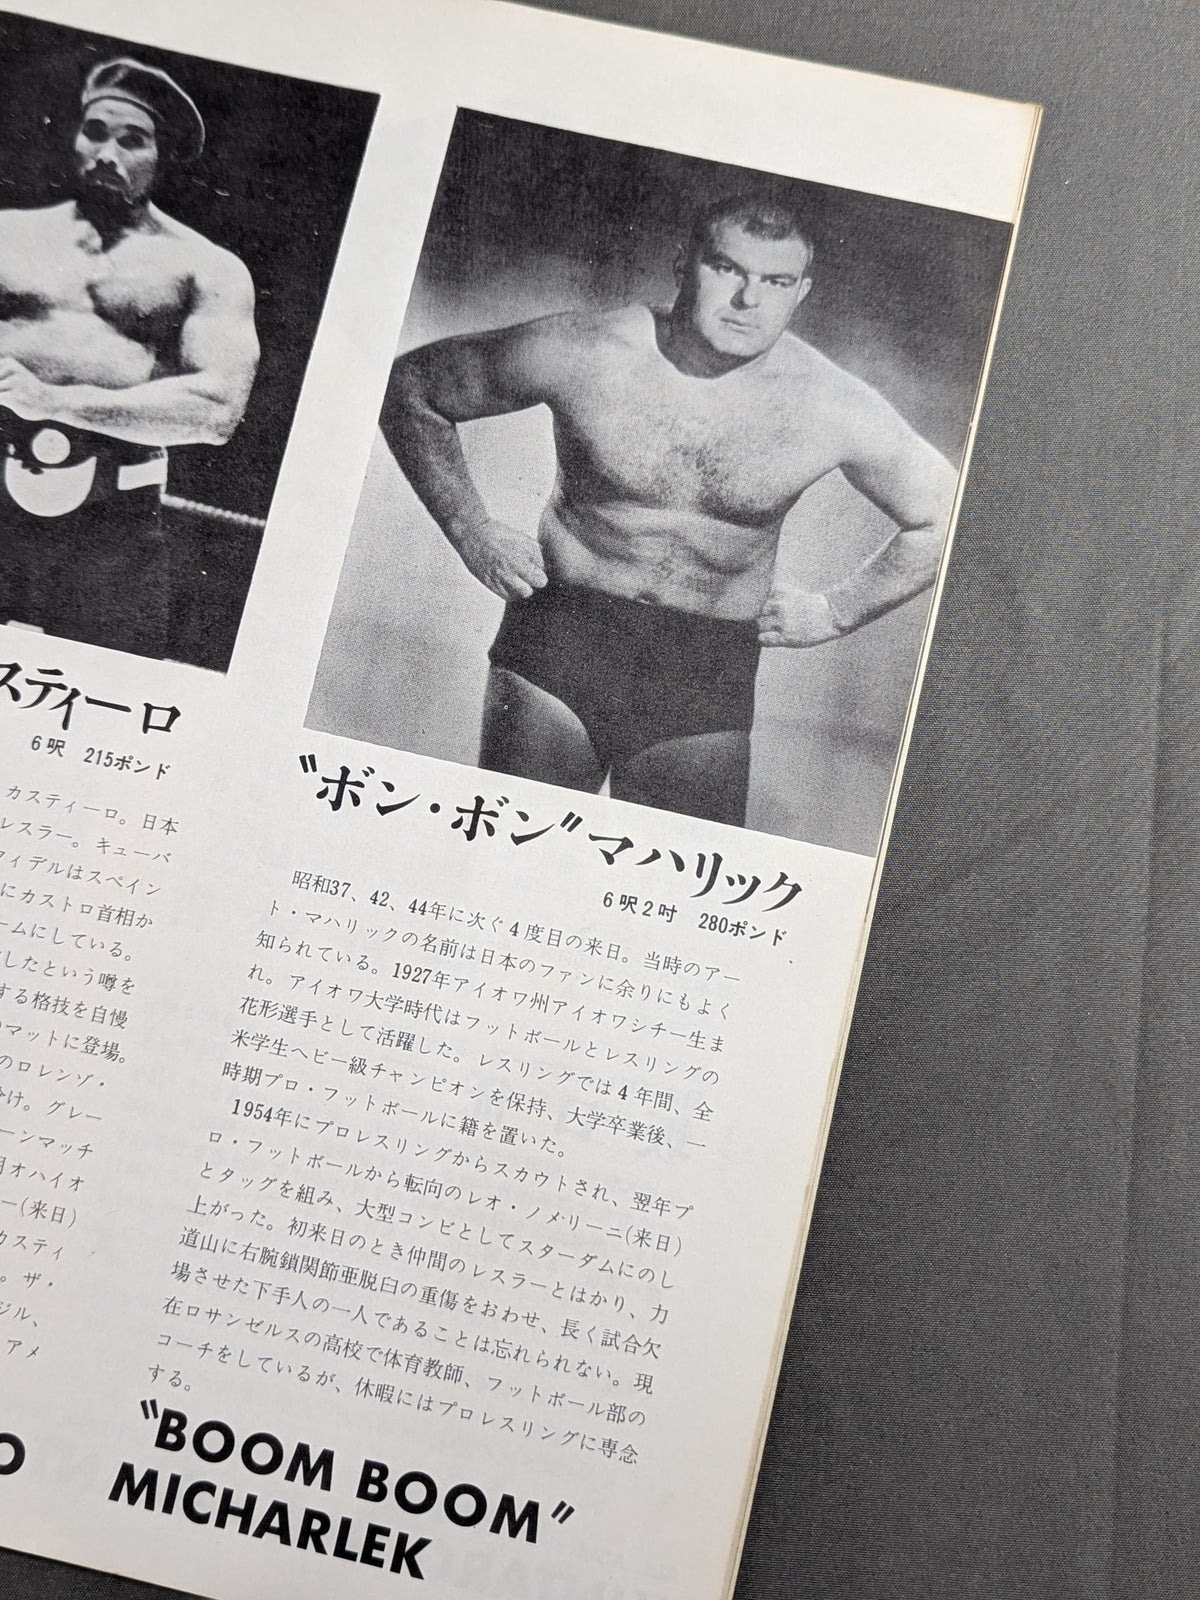 スティーロ
6呎 215ポンド
カスティーロ。日本
レスラー。キューバ
フィデルはスペイン
にカストロ首相か
ームにしている。
したという噂を
する格技を自慢
のマットに登場。
のロレンゾ・
分け。グレー
ーンマッチ
月オハイオ
ー(来日)
カスティ
。ザ・
ジル、
アメ
O
"ボン・ボン"マハリック
6呎2吋 280ポンド
昭和37、42、44年に次ぐ4度目の来日。当時のアー
ト・マハリックの名前は日本のファンに余りにもよく
知られている。1927年アイオワ州アイオワシチー生ま
れ。アイオワ大学時代はフットボールとレスリングの
花形選手として活躍した。レスリングでは4年間、全
米学生ヘビー級チャンピオンを保持、大学卒業後、一
時期プロ・フットボールに籍を置いた。
1954年にプロレスリングからスカウトされ、翌年プ
ロ・フットボールから転向のレオ・ノメリーニ(来日)
とタッグを組み、大型コンビとしてスターダムにのし
上がった。初来日のとき仲間のレスラーとはかり、力
道山に右腕鎖関節亜脱臼の重傷をおわせ、長く試合欠
場させた下手人の一人であることは忘れられない。現
在ロサンゼルスの高校で体育教師、フットボール部の
コーチをしているが、休暇にはプロレスリングに専念
する。
"BOOM BOOM"
MICHARLEK